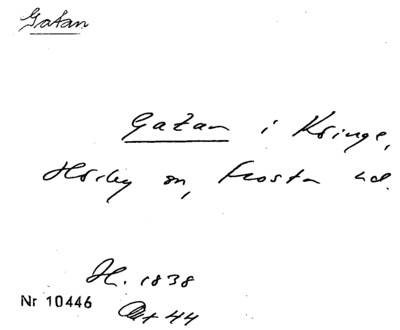 Gatan
Gatan i Kringe,
Hörby sn, Frosta hd.
H. 1838
Nr 10446
Akt 44